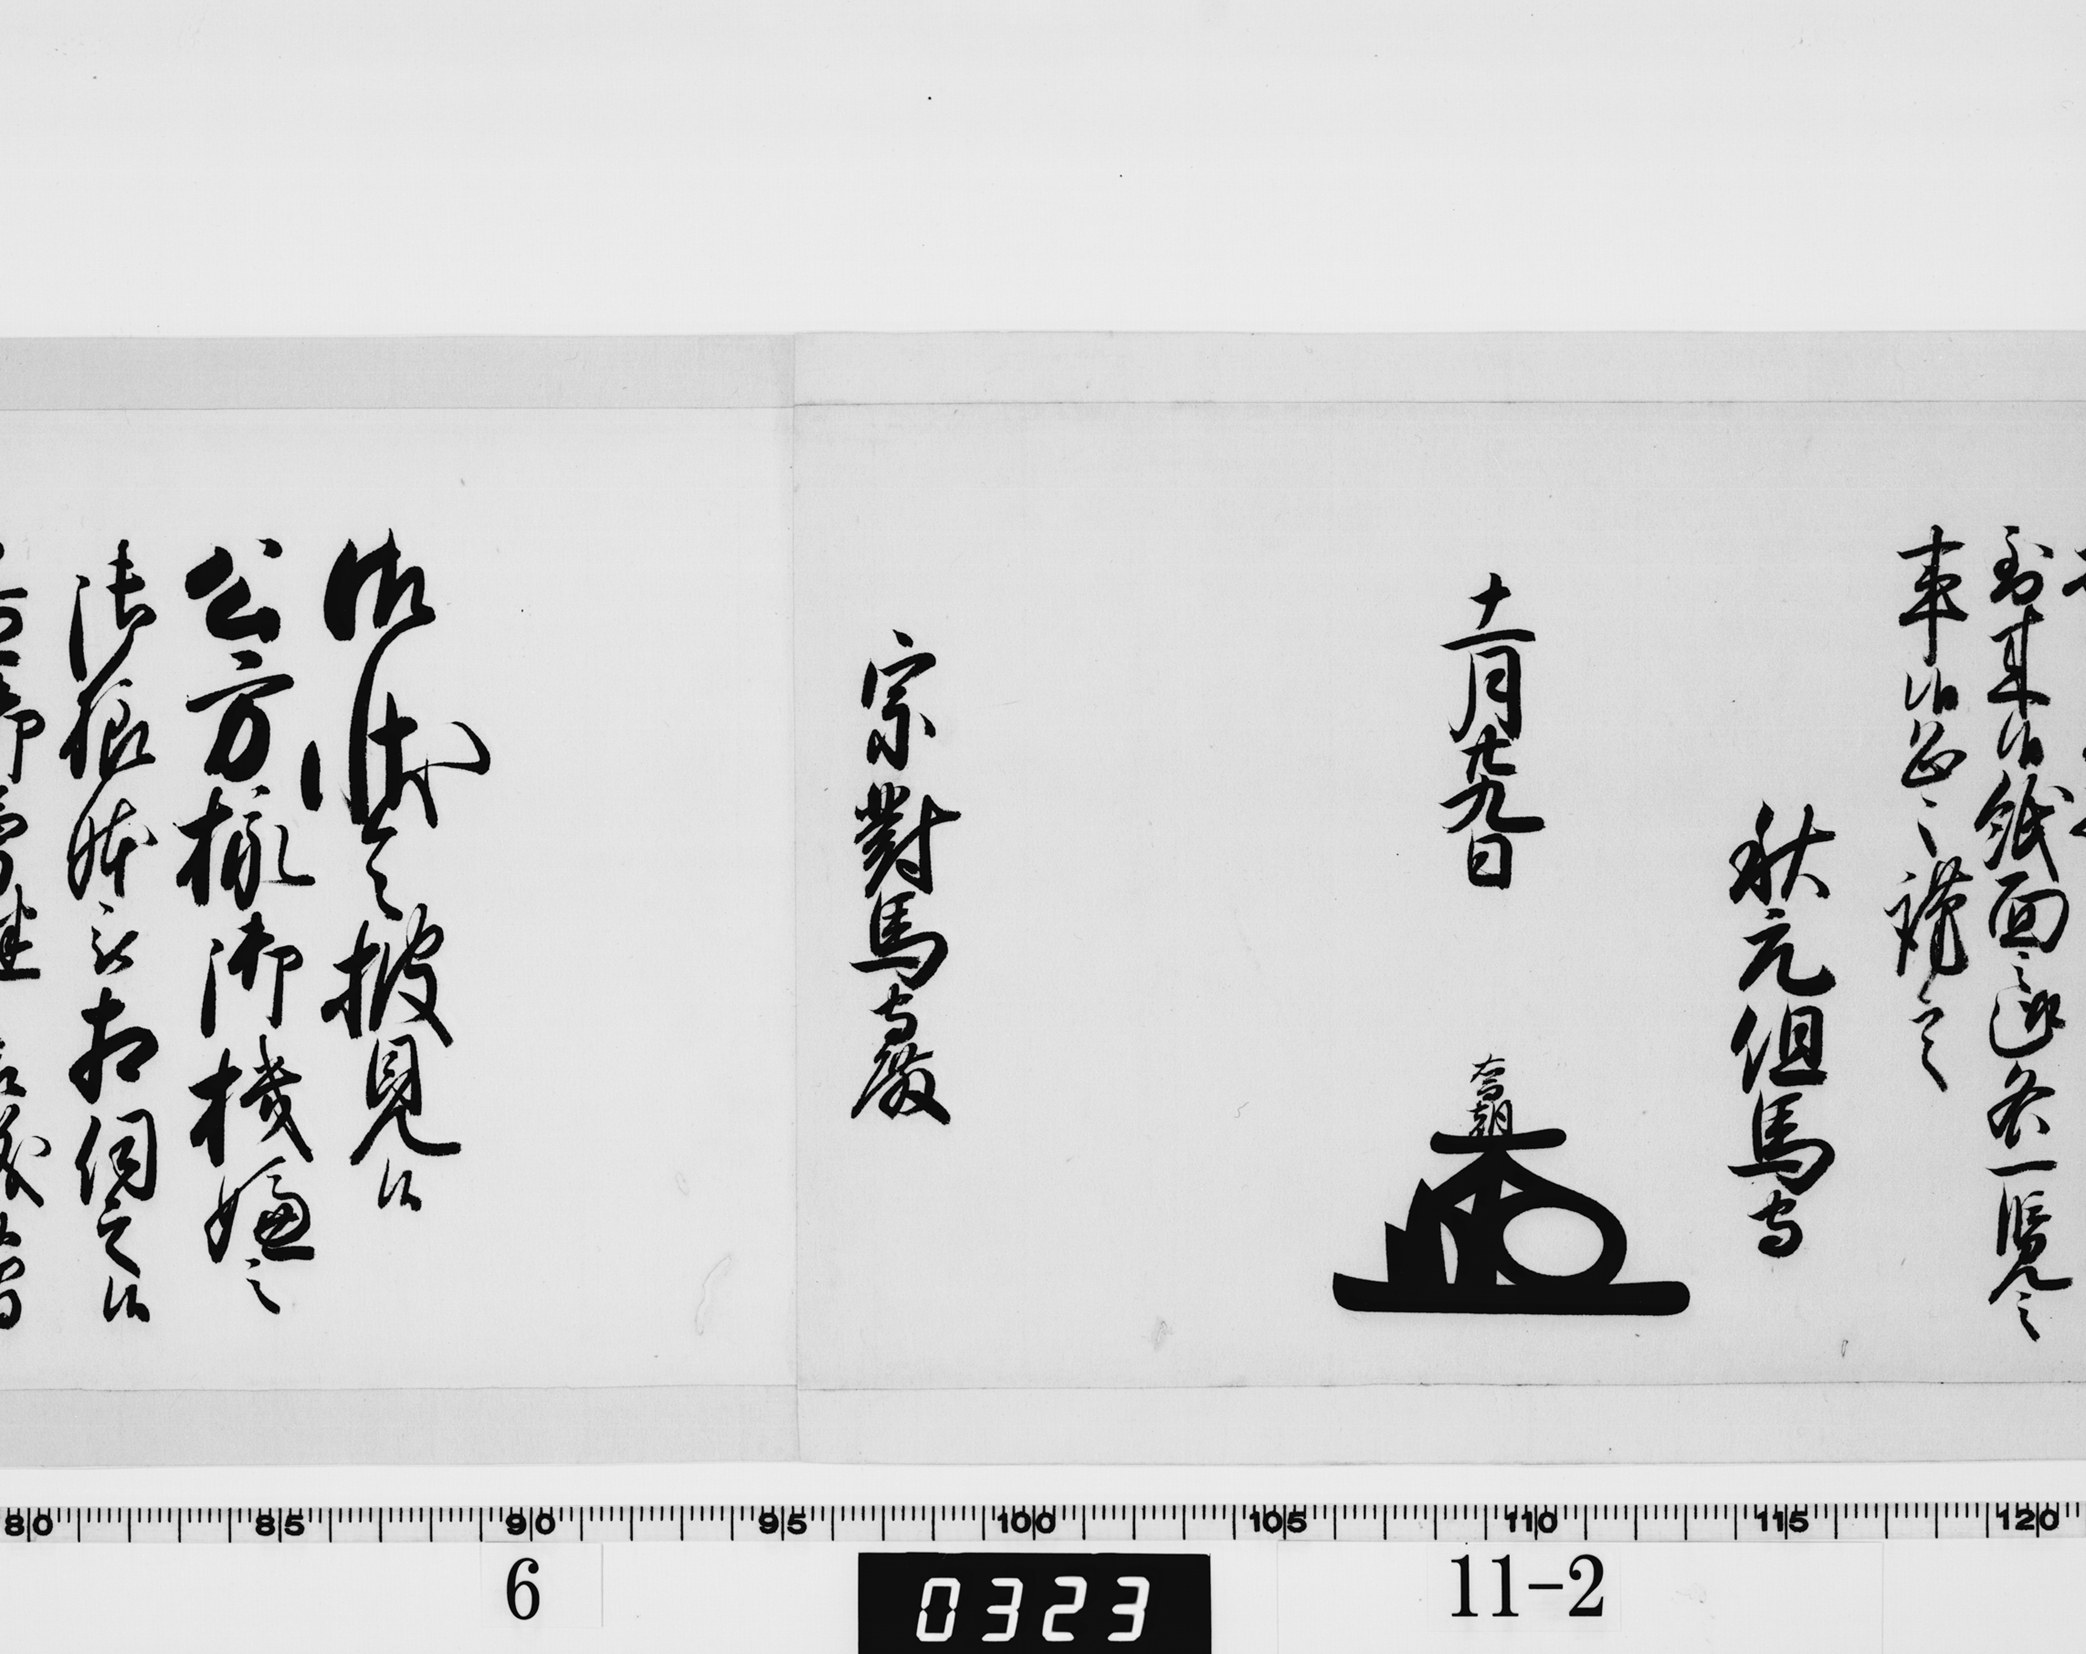 到来候紙面之趣各一覧之
事候恐々謹言
秋元但馬守
十一月廿九日
喬朝
宗對馬守殿
御状令披見候
公方様御機嫌之
御様躰被相伺之候
80 85 90 95 100 105 110 115 120
6
0323
11-2